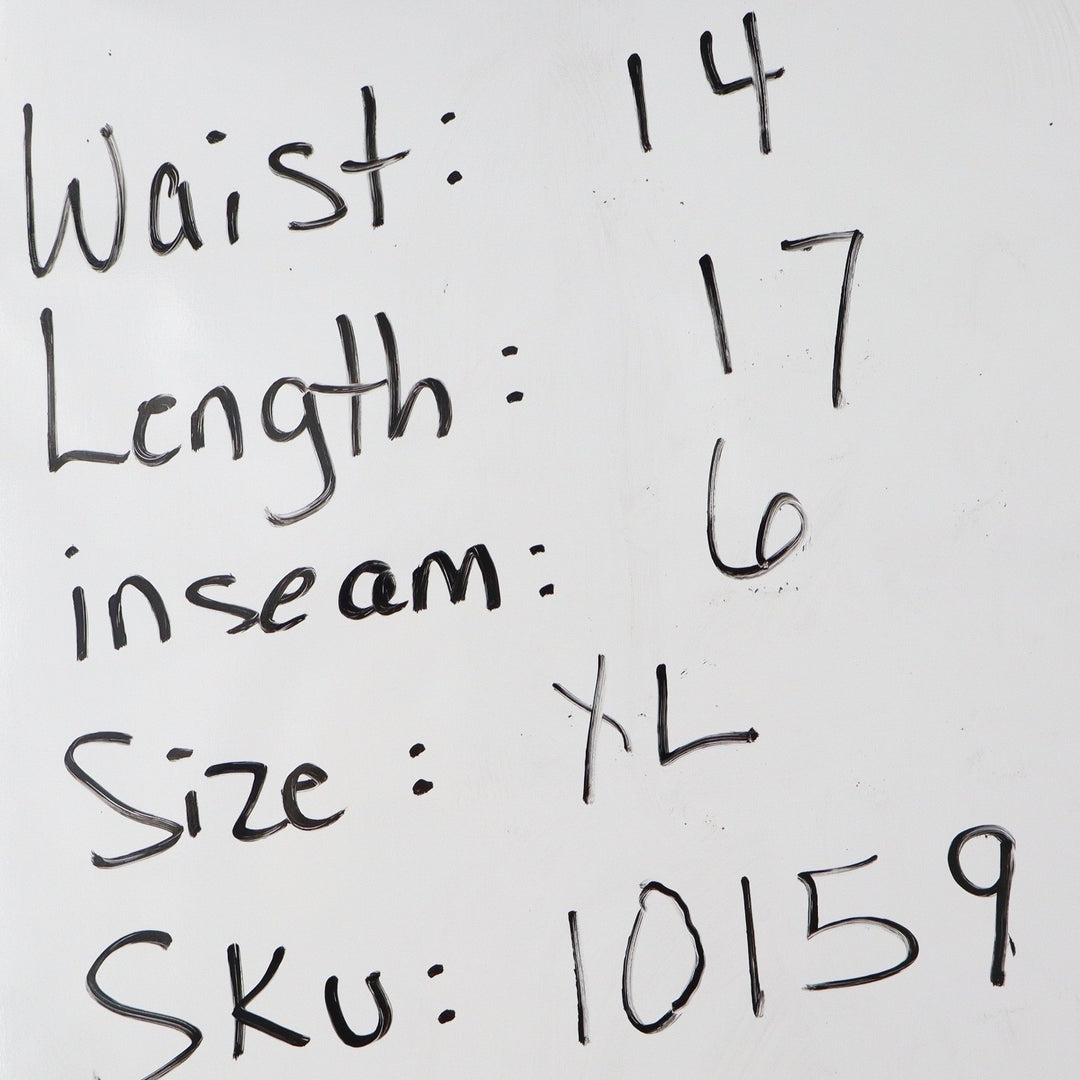 Waist: 14
Length: 17
inseam: 6
Size: XL
SKU: 10159